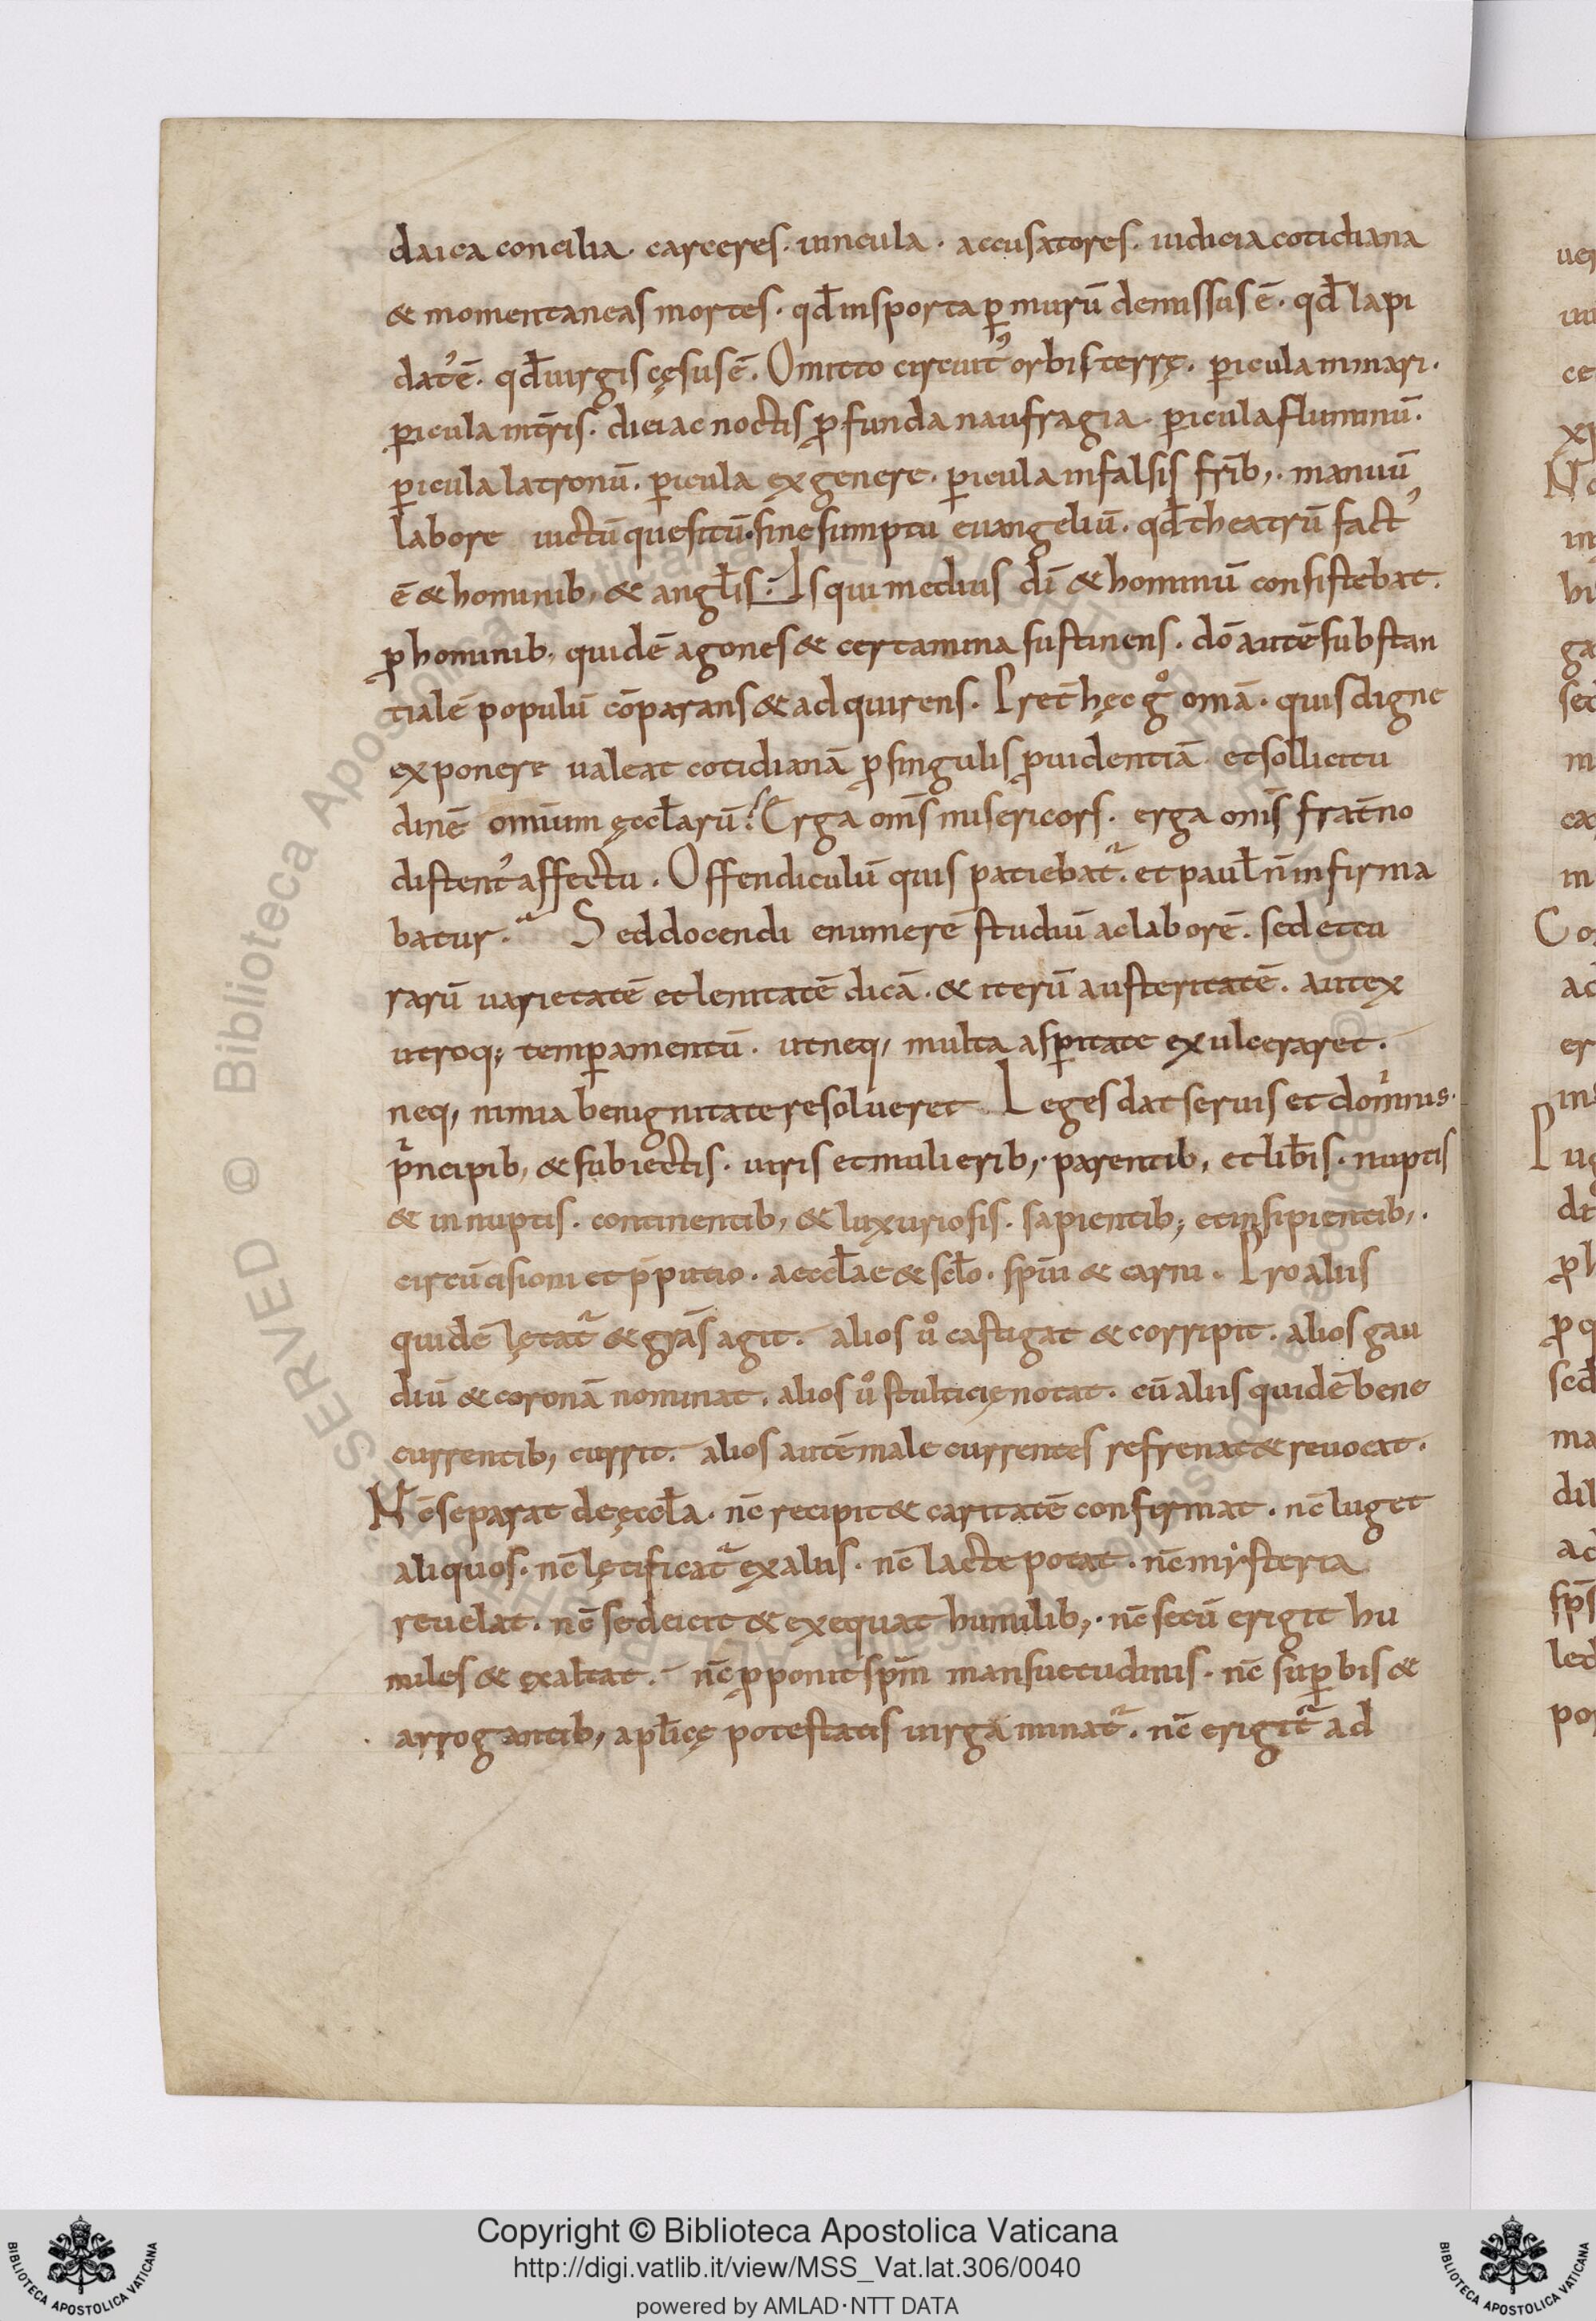 daica concilia. carceres. uincula. accusatores. iudicia cotidiana
& momentaneas mortes. qđ insporta ꝑ murū demissus ē. qđ lapi
dat᾿ ē. qđ uirgis cęsus ē. Omitto circuit᾿ orbis terrę. ꝑicula inmari.
ꝑicula int̄ris. diei ac noctis ꝓfunda naufragia. ꝑicula fluminū.
ꝑicula latronū. ꝑicula ex genere. ꝑicula infalsis fr̄ib,. manuū
labore uictū quesitū. sine sumptu euangeliū. qđ theatrū fact᾿
ē & hominib, & angłis. Is qui medius dī & hominū consistebat.
ꝓ hominib, quidē agones & certamina sustinens. dō autē substan
tialē populū cōparans & adquirens. Pret̄ hęc gͦ omā. quis digne
exponere ualeat cotidianā ꝓ singulis ꝓuidentiā et sollicitu
dinē omīum ęccłarū? Erga om̄s misericors. erga om̄s frat̄no
distent᾿ affectu. Offendiculū quis patiebat̃. et pauł n̄ infirma
batur. Sed docendi enumerē studiū ac laborē. sed et cu
rarū uarietatē et lenitatē dicā. & iterū austeritatē. aut ex
utroq; temꝑamentū. ut neq, multa asꝑitate exulceraret.
neq, nimia benignitate resolueret. Leges dat seruis et dominis.
pⁱncipib, & subiectis. uiris et mulierib,. parentib, et lib̄is. nuptis
& innuptis. continentib, & luxuriosis. sapientib; et insipientib,.
circūcisioni et p̄putio. aeccłae & scło. sp̄iu & carni. Pro aliis
quidē lętat̃ & gr̄as agit. alios uͦ castigat & corripit. alios gau
diū & coronā nominat. alios uͦ stulticię notat. cū aliis quidē bene
currentib, currit. alios autē male currentes refrenat & reuocat.
Nc̄ separat de ęccła. nc̄ recipit & caritatē confirmat. nc̄ luget
aliquos. nc̄ lętificat̃ ex aliis. nc̄ lacte potat. nc̄ mẏsteria
reuelat. nc̄ se deicit & exequat humilib,. nc̄ secū erigit hu
miles & exaltat. nc̄ ꝓponit sp̄m mansuetudinis. nc̄ suꝑbis &
arrogantib, apłicę potestatis uirgā minat̃. nc̄ erigit̃ ad
Copyright © Biblioteca Apostolica Vaticana
http://digi.vatlib.it/view/MSS_Vat.lat.306/0040
powered by AMLAD·NTT DATA